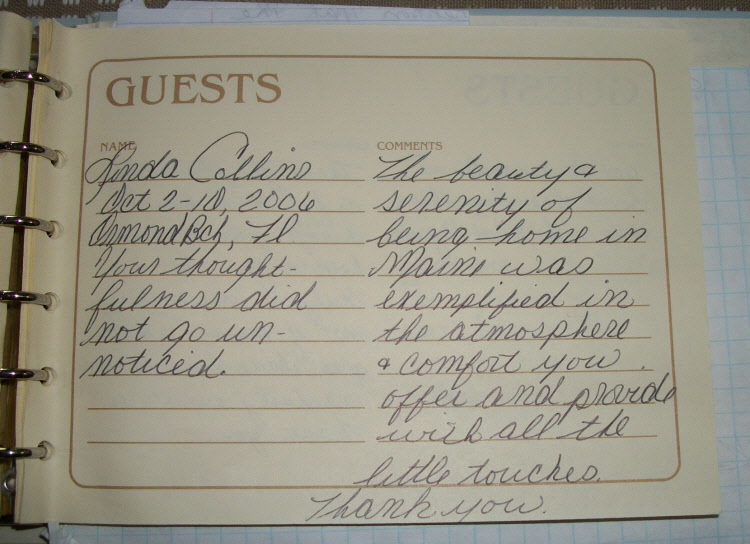 GUESTS
NAME
Linda Collins
Oct 2-10, 2006
Ormond Bch, Fl
Your thought-
fulness did
not go un-
noticed.
COMMENTS
The beauty &
serenity of
being home in
Maine was
exemplified in
the atmosphere
& comfort you
offer and provide
with all the
little touches.
Thank you.